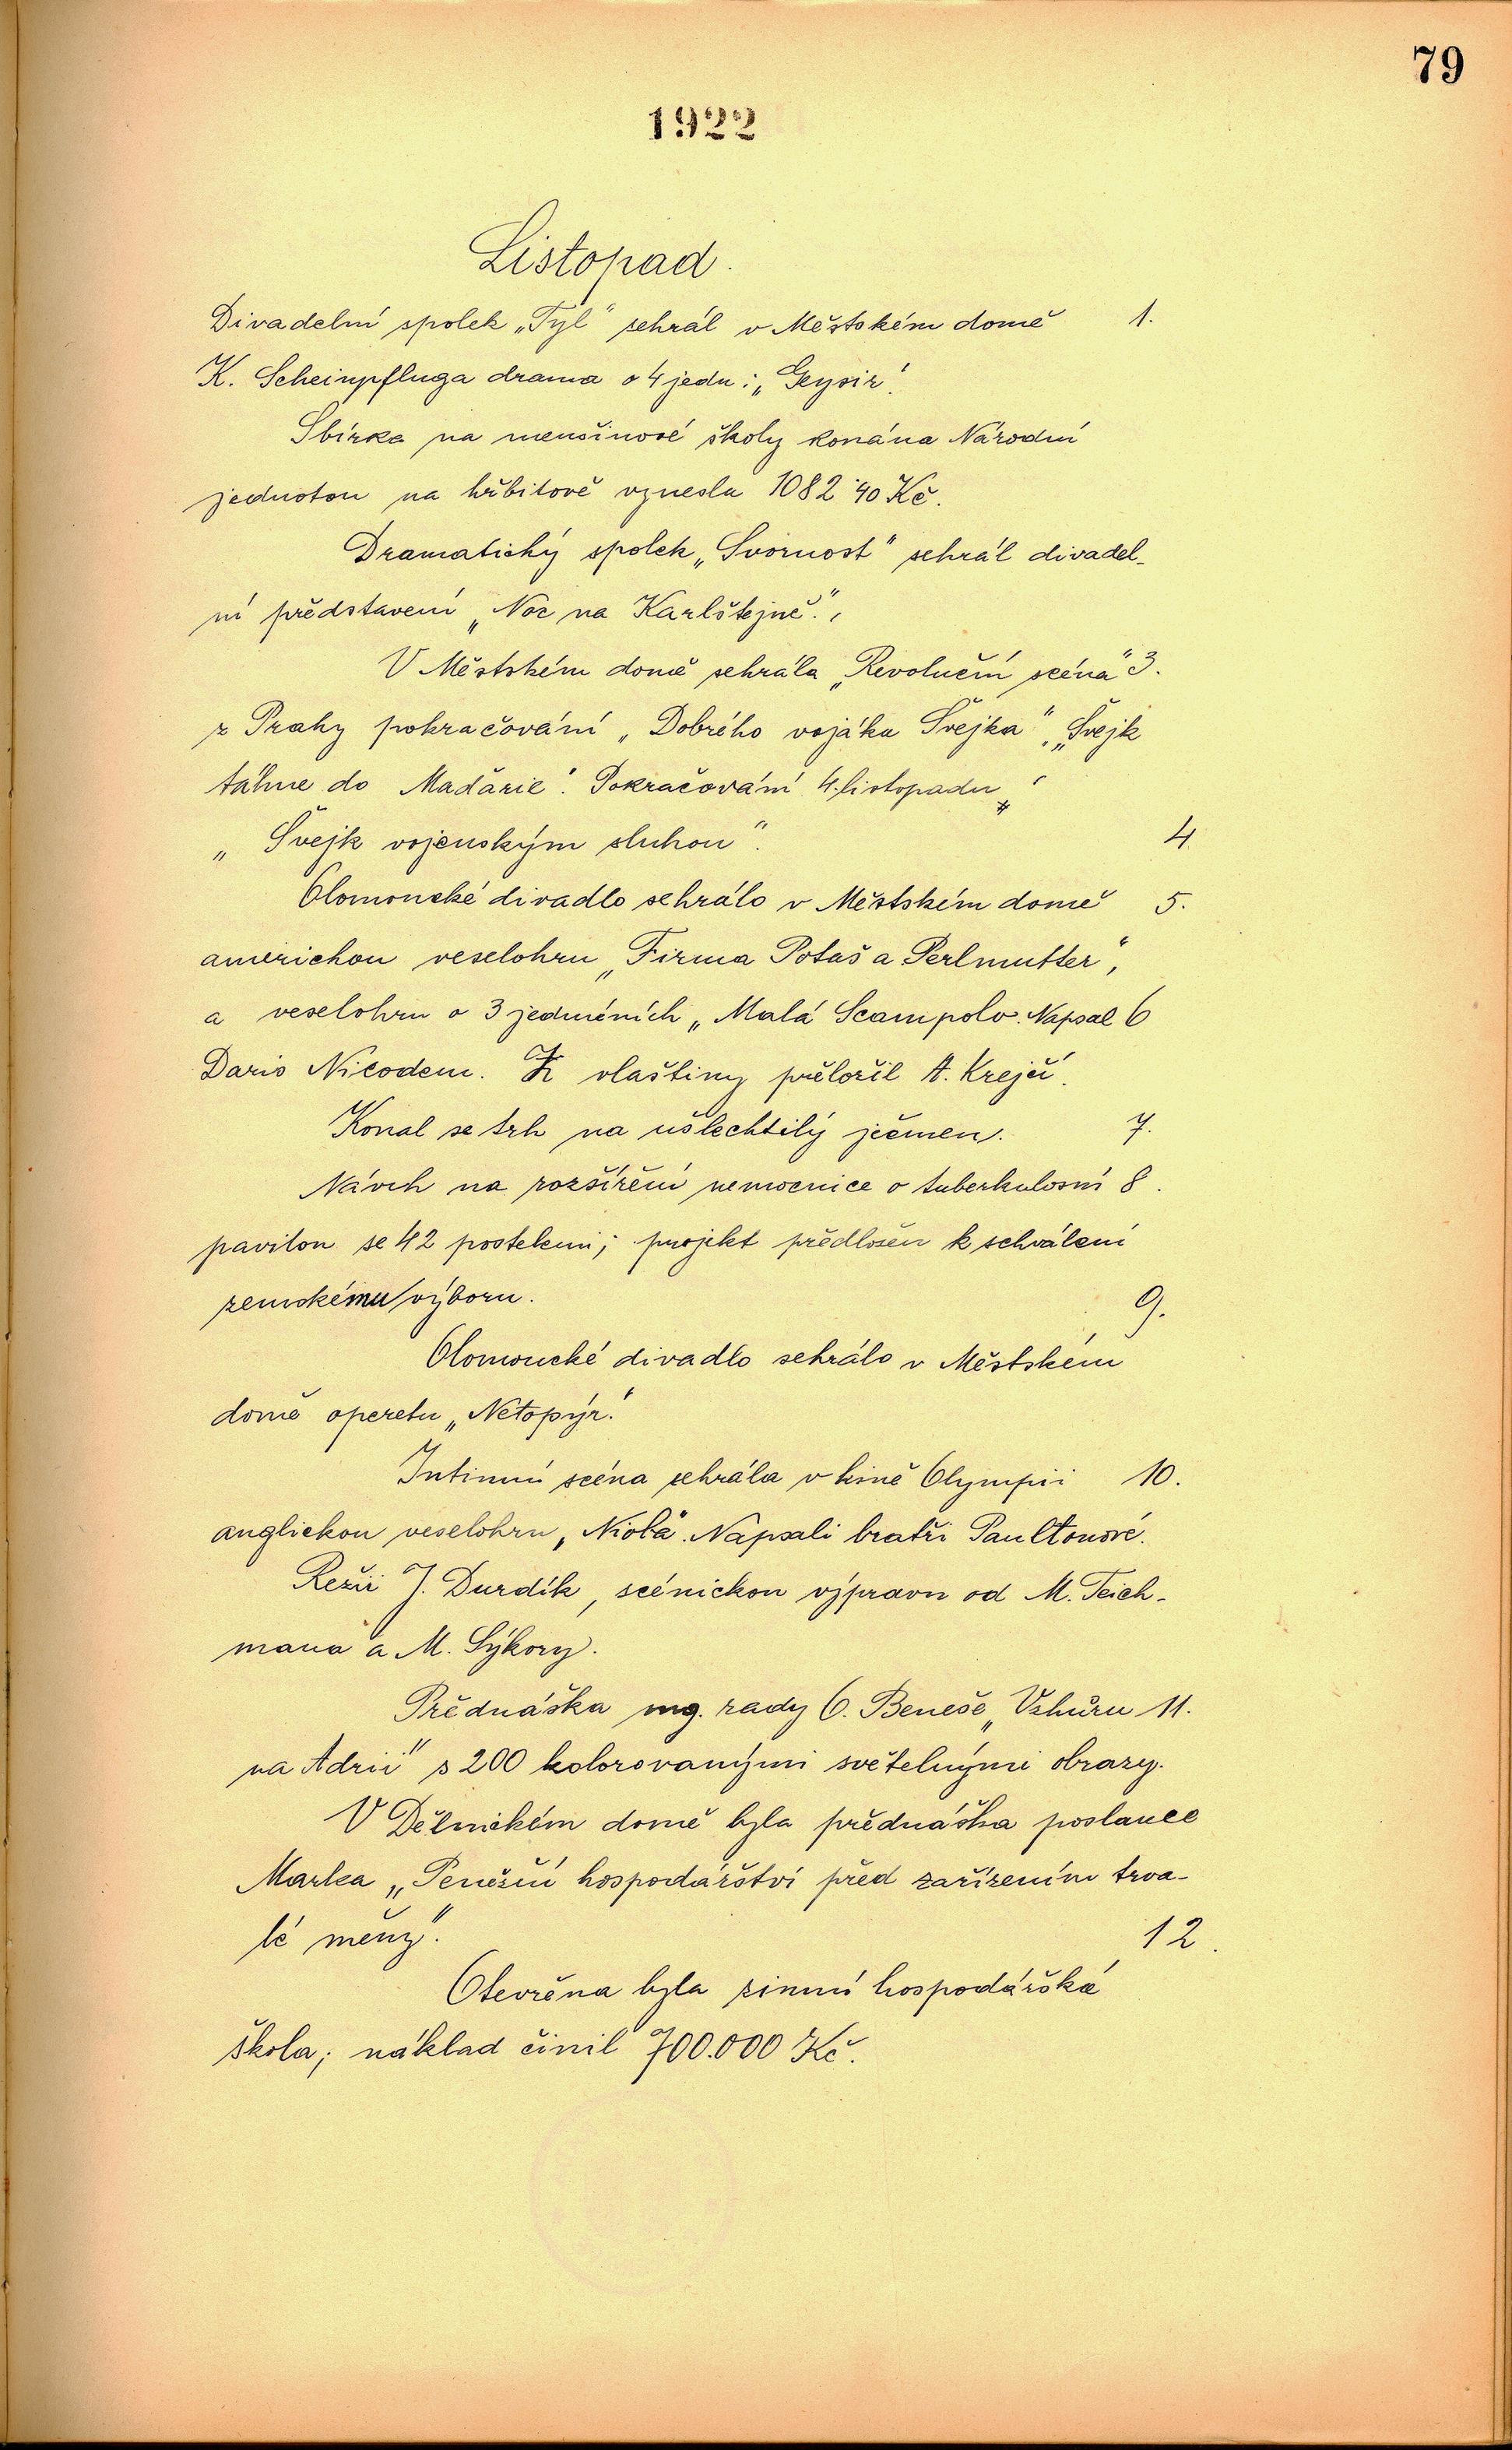 79
1922
Listopad.
Divadelní spolek „Tyl" sehrál v Městském domě 1.
K. Scheinpfluga drama o 4 jedn: „Geysir".
Sbírka na menšinové školy konána Národní
jednotou na hřbitově vynesla 1082˙40 Kč.
Dramatický spolek „Svornost" sehrál divadel-
ní představení „Noc na Karlštejně".
V Městském domě sehrála „Revoluční scéna" 3.
z Prahy pokračování „Dobrého vojáka Švejka", „Švejk
táhne do Maďarie". Pokračování 4. listopadu
„Švejk vojenským sluhou". 4
Olomoucké divadlo sehrálo v Městském domě 5.
americkou veselohru „Firma Potaš a Perlmutter",
a veselohru o 3 jednáních „Malá Scampolo. Napsal 6
Dario Nicodem. Z vlaštiny přeložil A. Krejčí.
Konal se trh na ušlechtilý ječmen. 7.
Návrh na rozšíření nemocnice o tuberkulosní 8.
pavilon se 42 postelemi; projekt předložen k schválení
zemskému výboru. 9.
Olomoucké divadlo sehrálo v Městském
domě operetu „Netopýr".
Intimní scéna sehrála v kině Olympii 10.
anglickou veselohru „Nioba". Napsali bratři Paultonové.
Režii J. Durdík, scénickou výpravu od M. Teich-
mana a M. Sýkory.
Přednáška mg. rady O. Beneše „Vzhůru 11.
na Adrii" s 200 kolorovanými světelnými obrazy.
V Dělnickém domě byla přednáška poslance
Marka „Peněžní hospodářství před zařízením trva-
lé měny". 12.
Otevřena byla zimní hospodářská
škola; náklad činil 700.000 Kč.